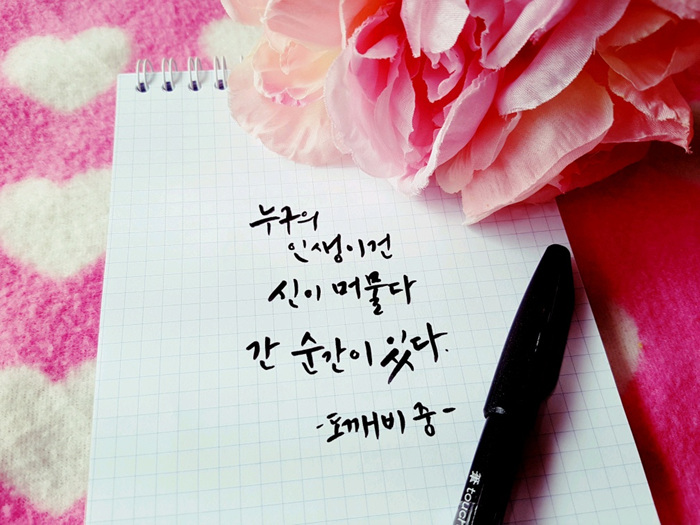 누구의
인생이건
신이 머물다
간 순간이 있다.
-도깨비 중-
touch